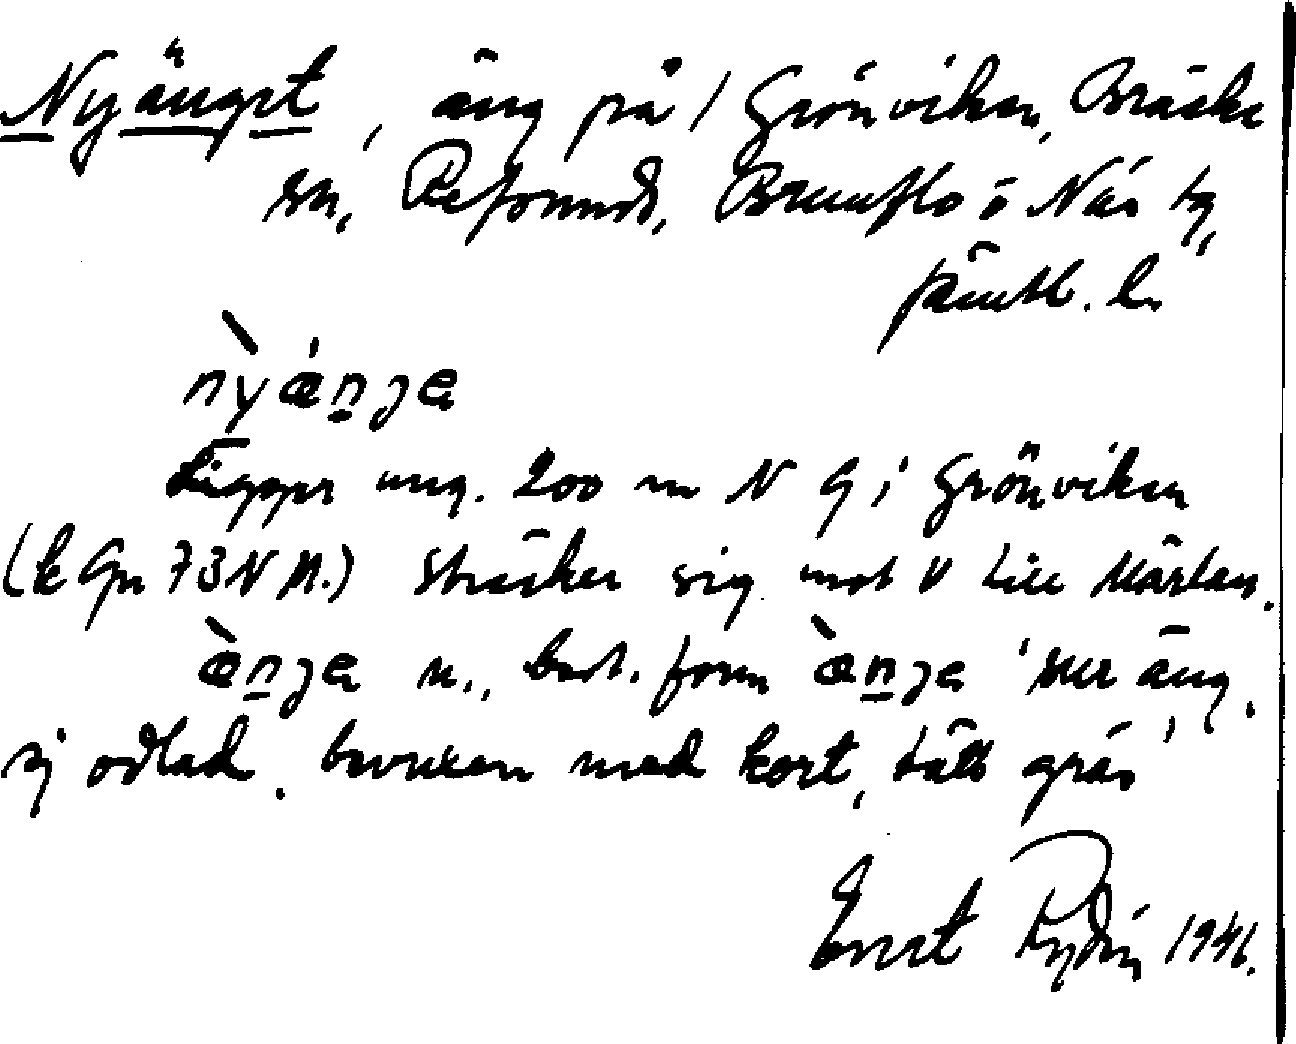 Nyänget, äng på 1 Grönviken, Bräcke
sn, Refsunds, Brunflo o Näs tg,
Jämtl. l.
nỳæ̀nja
Ligger ung. 200 m N G i Grönviken
(k Gn 73 N M.) sträcker sig mot V till
æ̀nja n., best. form æ̀nja 'sur äng,
ej odlad, bevuxen med kort, tätt gräs'
Ernst Rydén 1946.